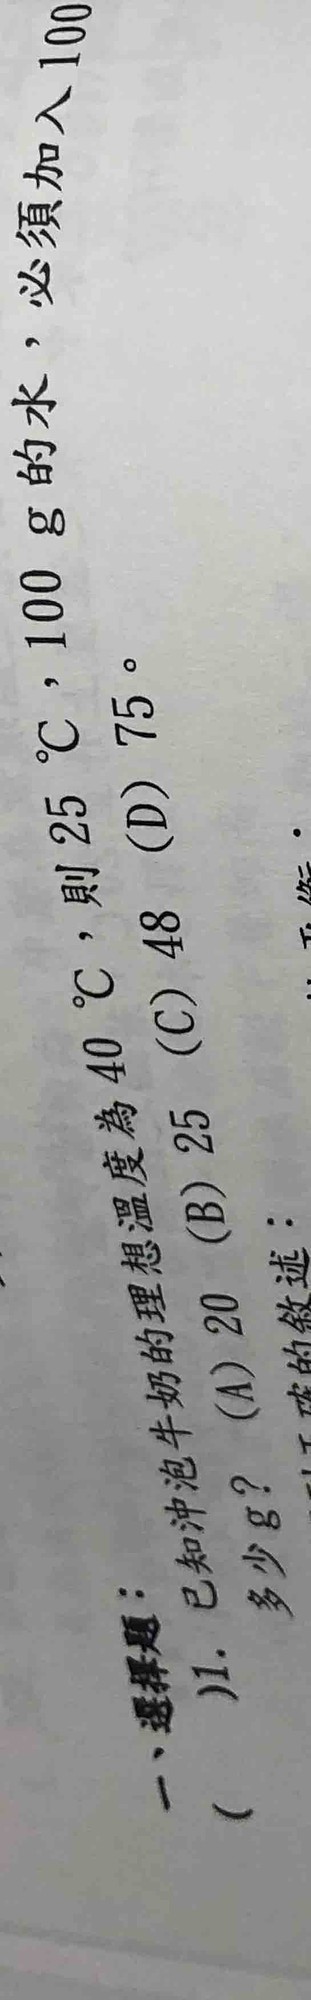 一、選擇題：
(    )1. 已知沖泡牛奶的理想溫度為 40 ℃，則 25 ℃，100 g 的水，必須加入 100
多少 g？ (A) 20 (B) 25 (C) 48 (D) 75。
的敘述：